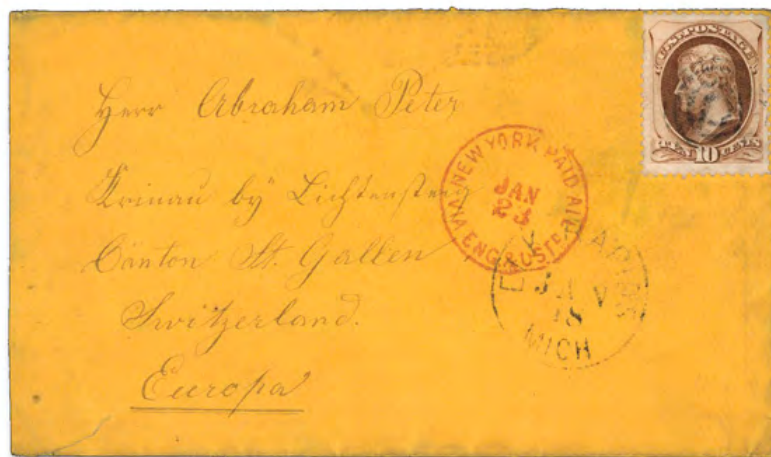 Herr Abraham Peter
Krinau by Lichtensteig
Canton St. Gallen
Switzerland.
Europa
VIA NEW YORK PAID ALL
JAN
23
ENG & OSTE
JAN
18
MICH
U.S. POSTAGE
TEN 10 CENTS